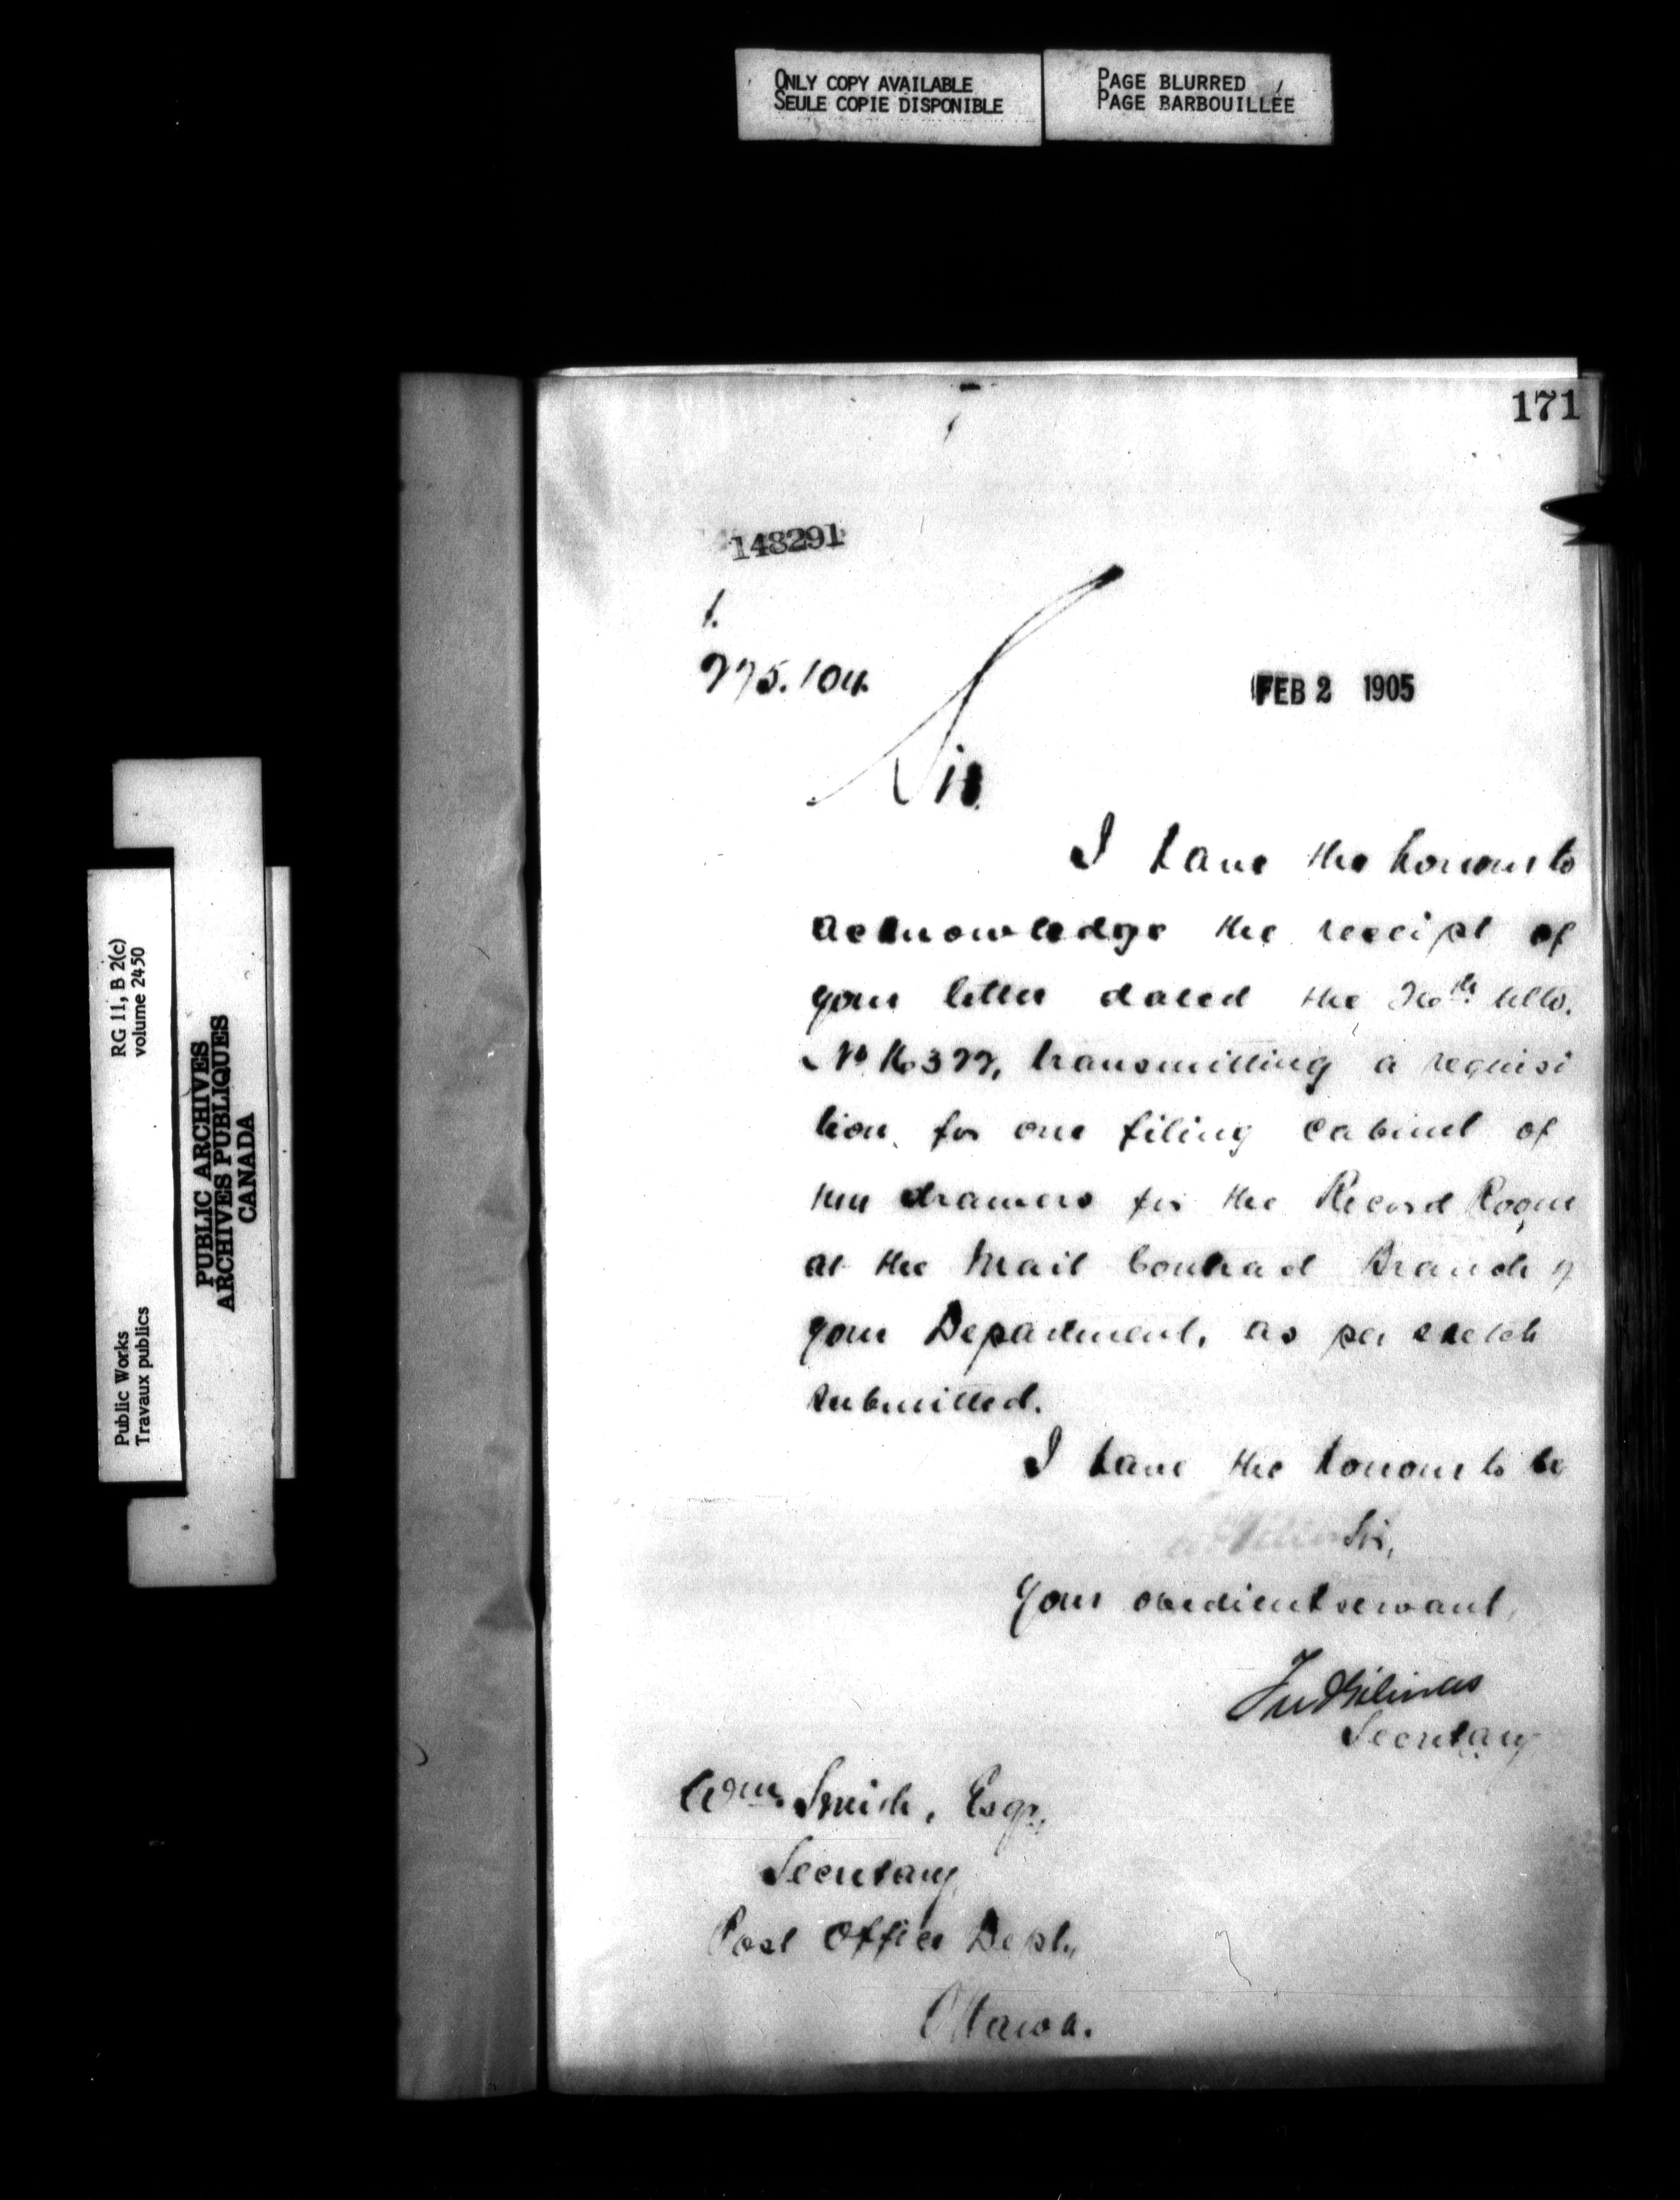 ONLY COPY AVAILABLE
SEULE COPIE DISPONIBLE
PAGE BLURRED
PAGE BARBOUILLÉE
171
148291
1.
275.104.
FEB 2 1905
Sir.
I have the honour to
acknowledge the receipt of
your letter dated the ulto.
transmitting a requisi
tion for one filing cabinet of
ten drawers for the Record Room
at the Mail Contract Branch of
your Department, as per sketch
submitted.
I have the honour to be
Sir,
Your obedient servant,
Fred Gélinas
Secretary
Wm. Smith, Esqr.,
Secretary
Post Office Dept.,
Ottawa.
RG 11, B 2(c)
volume 2450
Public Works
Travaux publics
PUBLIC ARCHIVES
ARCHIVES PUBLIQUES
CANADA